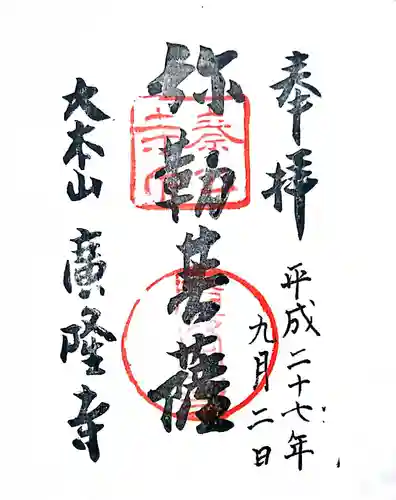 奉拝
平成二十七年
九月二日
弥勒菩薩
大本山
廣隆寺